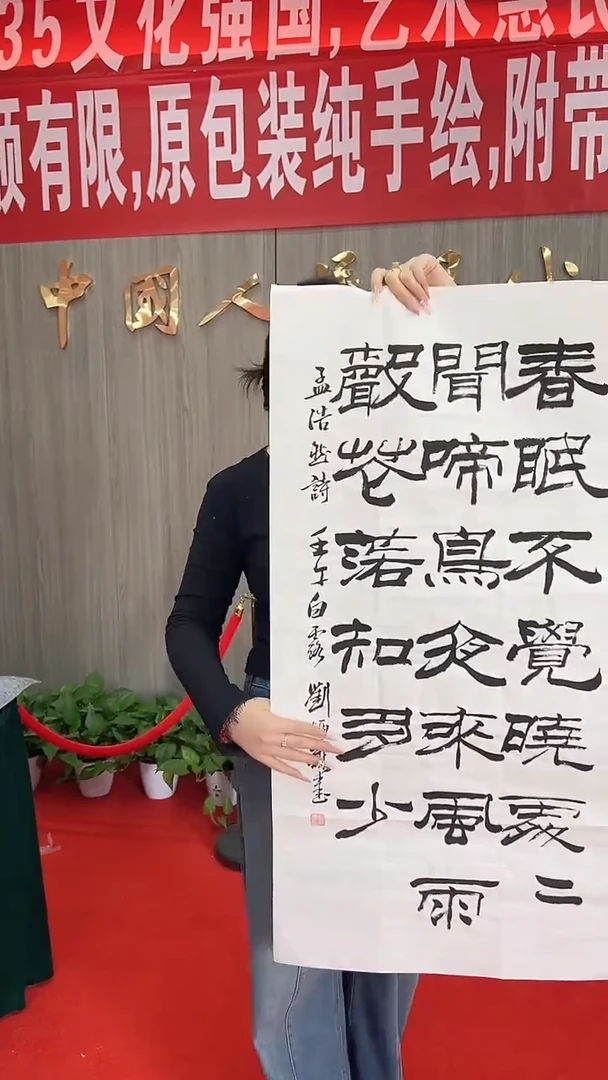 35文化强国,艺术惠民
额有限,原包装纯手绘,附带
中國人
春眠不覺曉處二
聞啼鳥夜來風雨
聲花落知多少
孟浩然詩 壬午白露 劉書